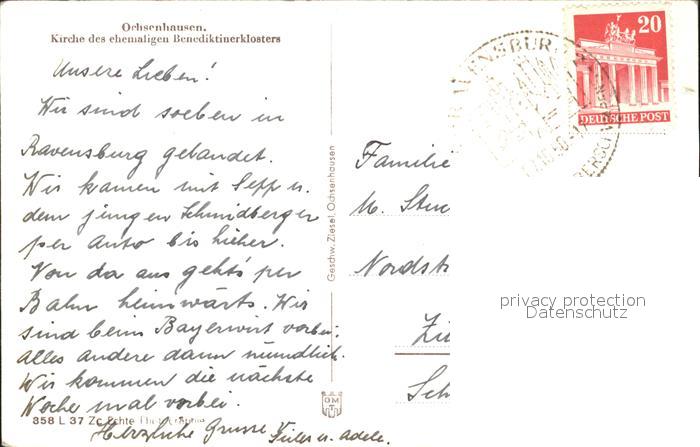 Ochsenhausen.
Kirche des ehemaligen Benediktinerklosters
Unsere Lieben!
Wir sind soeben in
Ravensburg gelandet.
Wir kamen mit Sepp u.
dem jungen Schmidberger
per Auto bis hieher.
Von da aus geht's per
Bahn heimwärts. Wir
sind beim Bayerwirt vorbei.
Alles andere dann mündlich.
Wir kommen die nächste
Woche mal vorbei.
Herzliche Grüsse
u. Adele.
858 L 37 Zc Echte Photographie
Geschw. Ziesel, Ochsenhausen
20
DEUTSCHE POST
RAVENSBURG
Familie
M.
Nordst
Zü
Sch
privacy protection
Datenschutz